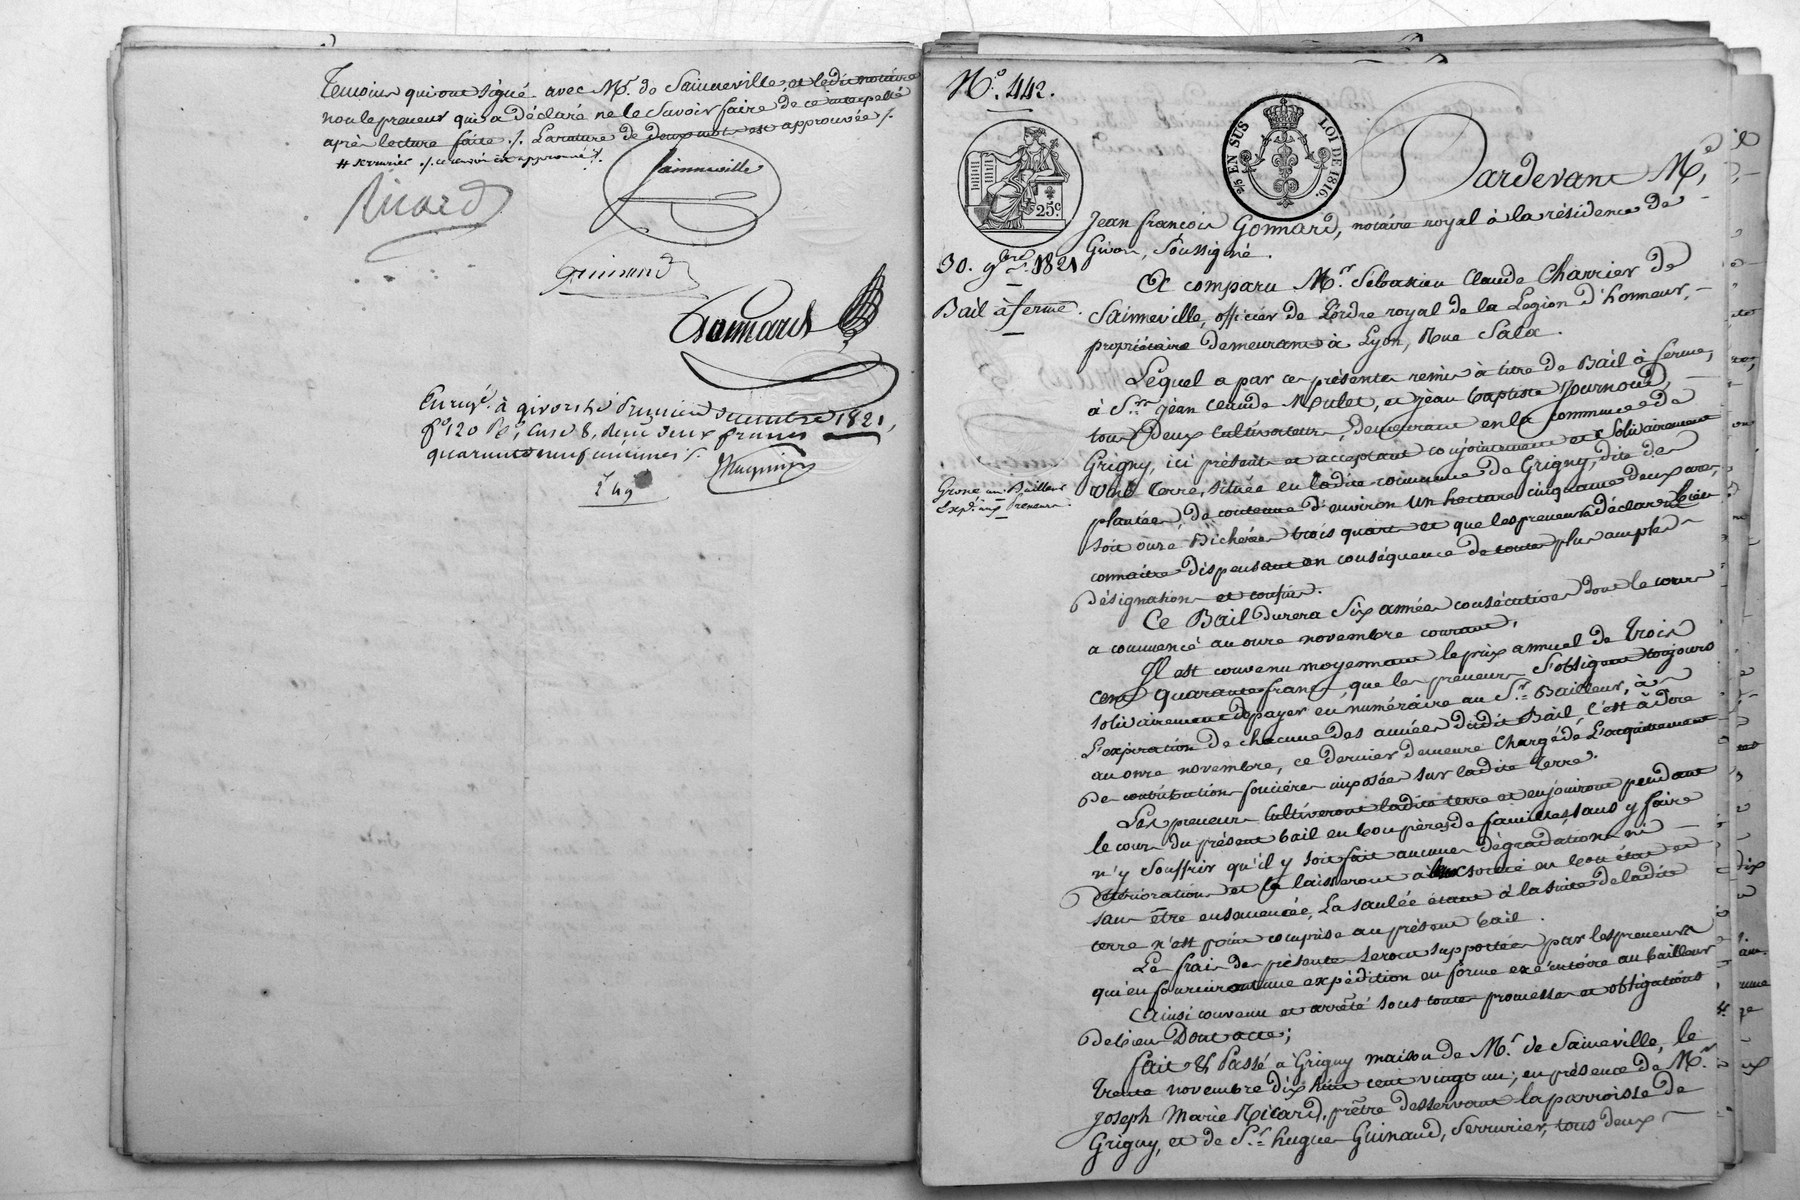 Temoins qui ont signé avec Mr. de Sainneville, et ledit notaire
non le preneur qui a déclaré ne le savoir faire de ce interpellé
après lecture faite ./. La rature de deux mots est approuvée ./.
# serrurier ./. ce renvoi est approuvé ./.
Sainneville
Ricard
Guinand
Gonnard
Enregé. à givors le premier décembre 1821,
fo. 120 Ro, Case 8, Reçu deux francs
quarante neuf centimes ./.
2 49
No. 442.
25c
2/5 EN SUS LOI DE 1816.
Pardevant Me,
Jean françois Gonnard, notaire royal à la résidence de
Givors, Soussigné.
30. 9bre. 1821
Bail à ferme.
A comparu Mr. Sébastien Claude Charrier de
Sainneville, officier de l'ordre royal de la Légion d'honneur,
propriétaire demeurant à Lyon, Rue Sala.
Lequel a par ces présentes remis à titre de Bail à ferme,
à Srs. Jean Claude Mulet, et jean baptiste Journoud,
tous deux Cultivateurs, demeurant en la commune de
Grigny, ici présents et acceptant conjointement et solidairement
Grosse au Bailleur
Expon. aux Preneurs.
une terre, située en ladite commune de Grigny, dite des
plantées, de contenue d'environ un hectare cinquante deux ares,
soit onze Bicherées trois quarts et que les preneurs déclarent bien
connaitre dispensant en conséquence de toute plus ample
désignation et confins.
Ce Bail durera Six années consécutives dont le cours
a commencé au onze novembre courant,
Il est convenu moyennant le prix annuel de trois
cents quarante francs, que les preneurs s'obligent toujours
solidairement de payer en numéraire au Sr. Bailleur, à
l'expiration de chacune des années dudit Bail, c'est à dire
au onze novembre, ce dernier demeure chargé de l'acquittement
des contributions foncières imposées sur ladite terre.
Les preneurs cultiveront ladite terre et en jouiront pendant
le cours du présent bail en bons pères de familles sans y faire
n'y souffrir qu'il y soit fait aucunes dégradations ni
détériorations et la laisseront à leur sortie en bon état et
sans être ensemencée, La saulée étant à la suite de ladite
terre n'est point comprise au présent bail.
Les frais des présentes seront supportés par les preneurs
qui en fourniront une expédition en forme exécutoire au bailleur
Ainsi convenu et arrêté sous toutes promesses et obligations
de bien Dont acte;
fait & Passé à Grigny maison de Mr. de Sainneville, le
trente novembre dix huit cent vingt un; en présence de Mr.
Joseph Marie Ricard, prêtre desservant la parroisse de
Grigny, et de Sr. hugues Guinand, Serrurier, tous deux